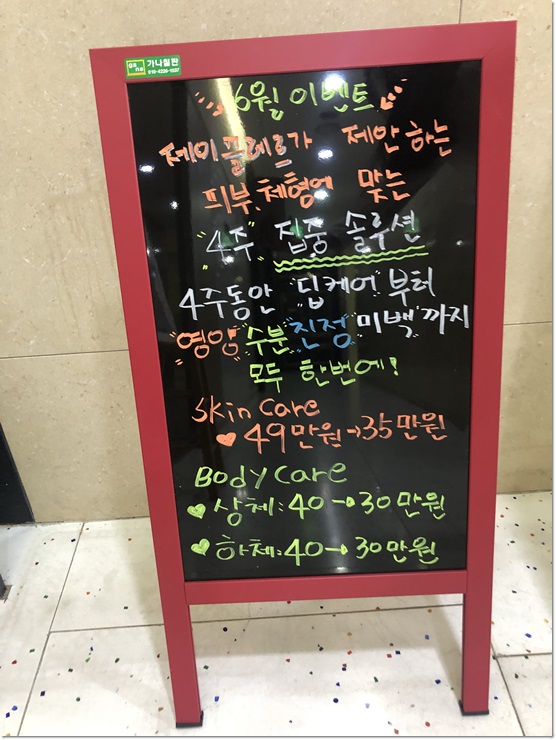 가나칠판
010-4226-1537
6월 이벤트
제이쁠레르가 제안하는
피부, 체형에 맞는
"4주" 집중 솔루션
4주동안 "딥케어" 부터
"영양" "수분" "진정" "미백" 까지
모두 한번에!
Skin Care
♥ 49만원→35만원
Body Care
♥ 상체:40→30만원
♥ 하체:40→30만원